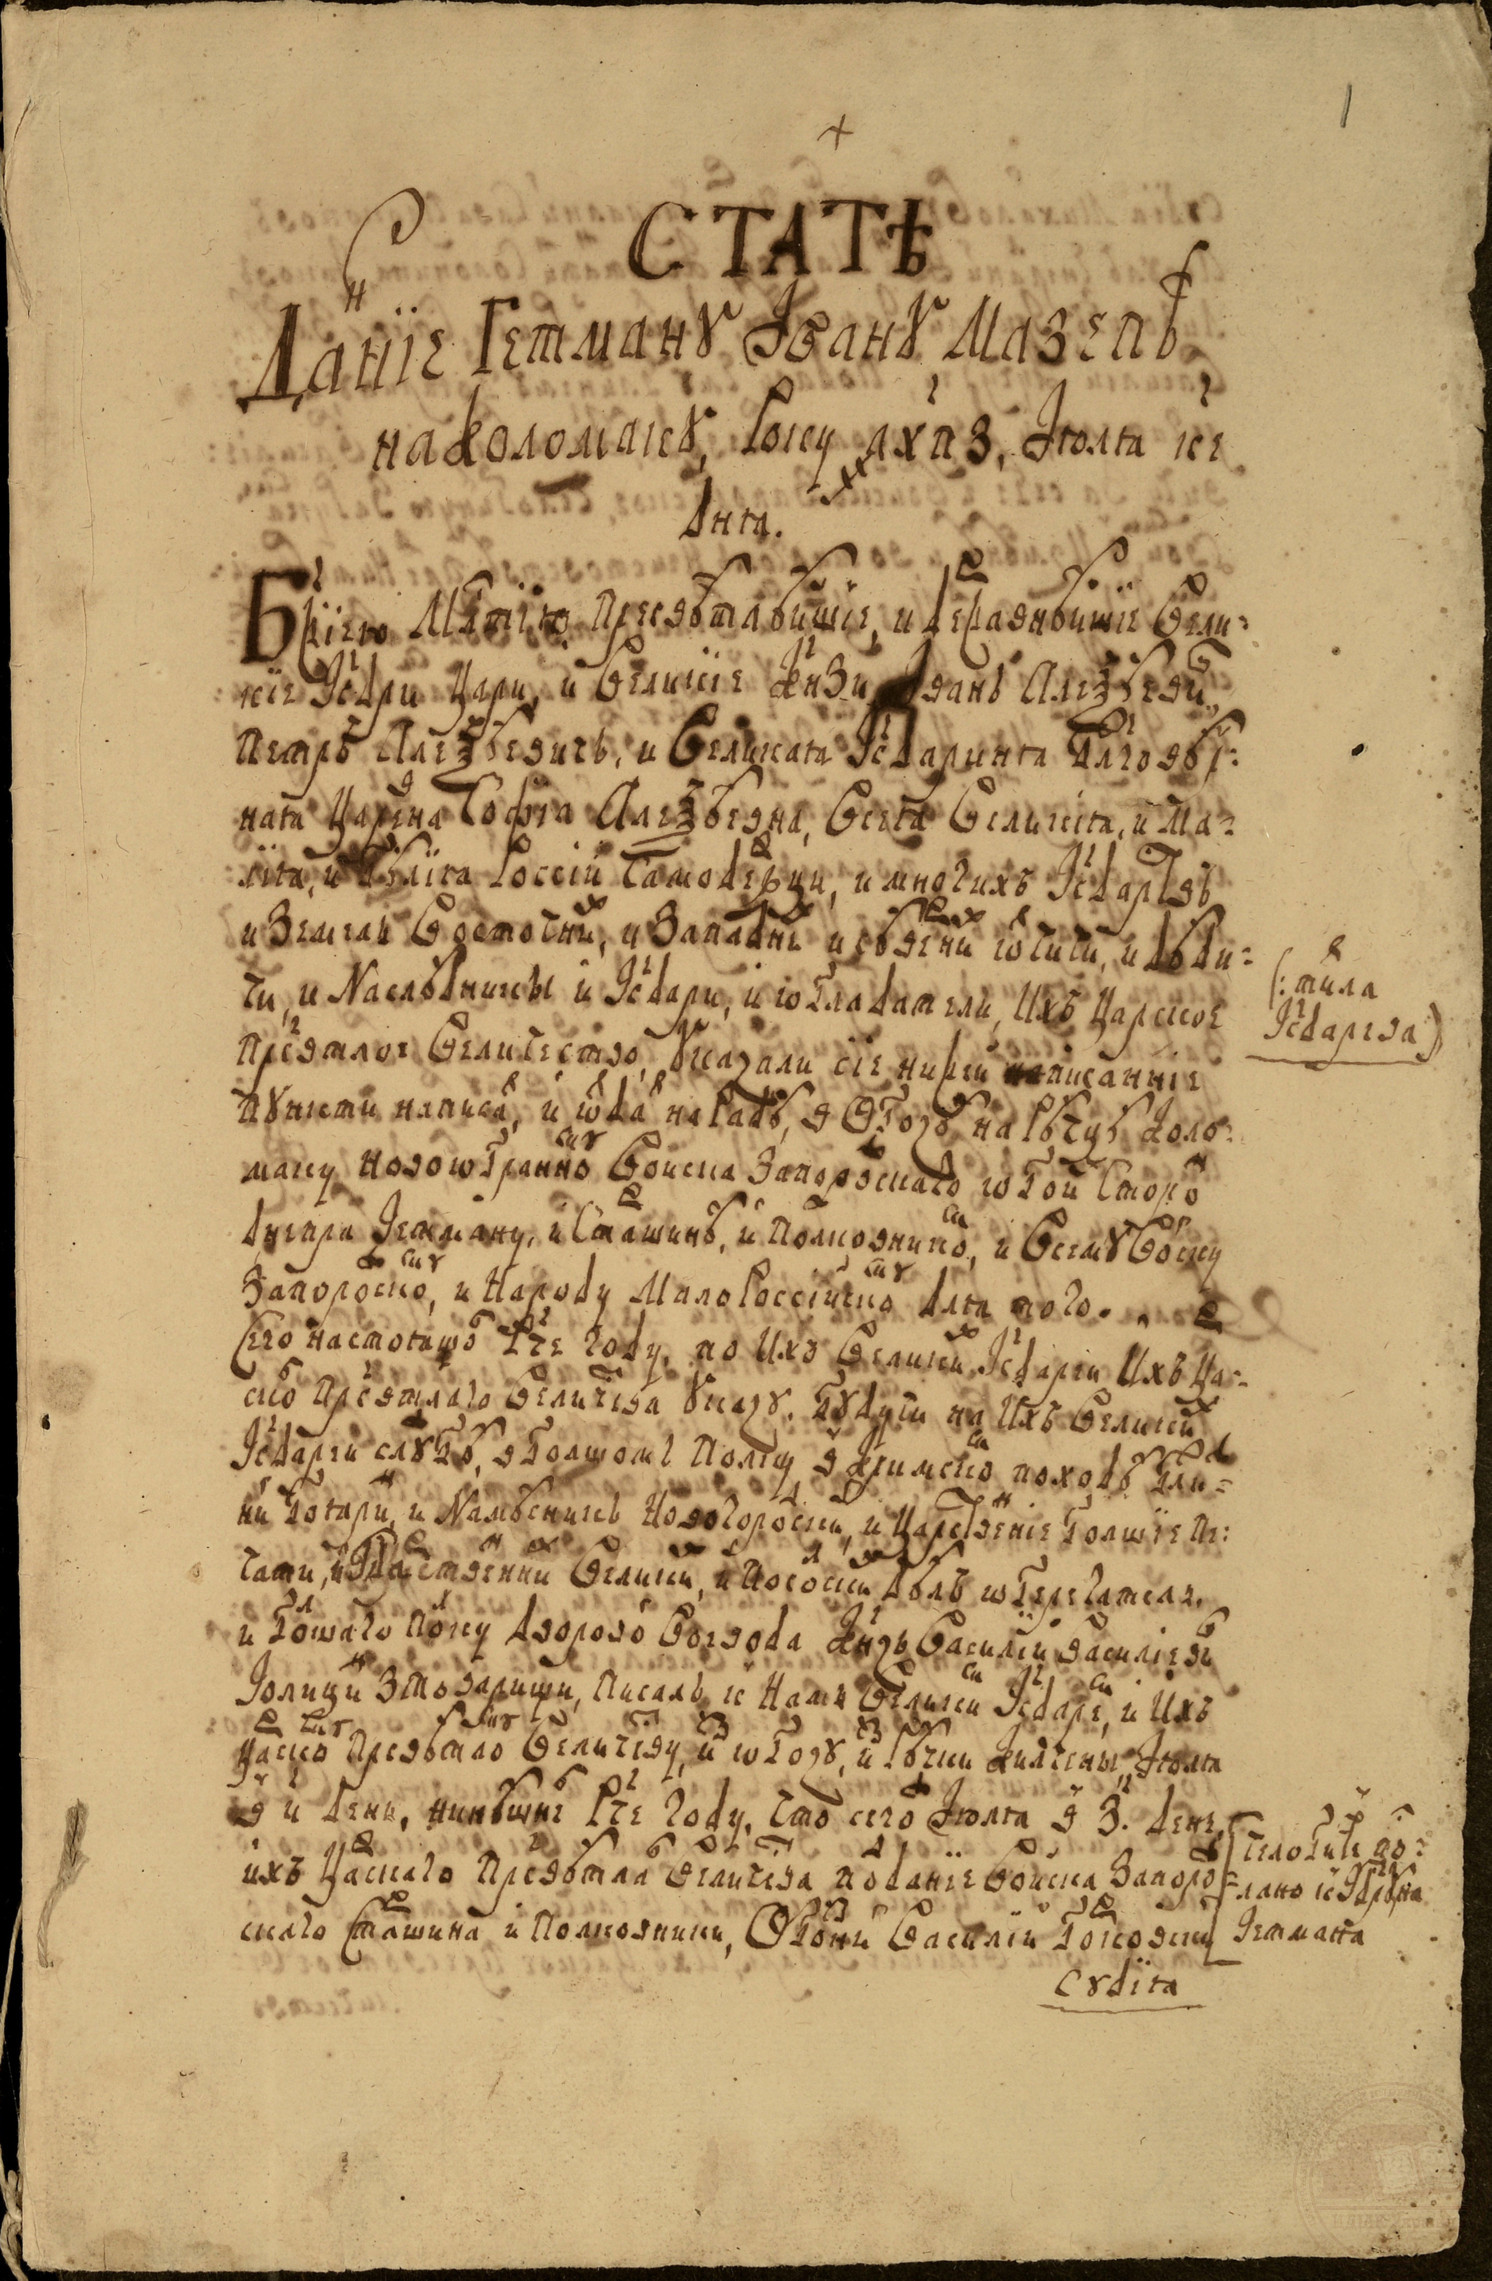 СТАТѢ
Данніе Гетману Іѡану Мазепѣ
на Коломаку, Року ахпз, Іюля ке
дня.
Бжіею Млтію Пресвѣтлѣйшіе, и Державнѣйшіе Вели-
кіе Гсдри Цари, и Великіе Кнзи, Іоанъ Алеѯѣевич,
Петръ Алеѯѣевичъ, и Великая Гсдариня Блговѣр-
ная Царевна Софія Алеѯѣевна, Всея Великія, и Ма-
лія, и Бѣлія Россій Самодержци, и многихъ Гсдарствъ
и Земель Восточних, и Западних и сѣверних ѡтчичи, и дѣди-
чи, и Наслѣдники и Гсдари, и ѡбладатели, Ихъ Царское
Пресвтлое Величество, Указали сіе нижей написанніе
пункти написат, и ѡтдат на Радѣ, в Обозѣ на Рѣчцѣ Коло-
маку новоѡбранному Войска Запорозскаго ѡбой Сторон
Днепра Гетману, и Старшинѣ, и Полковником, и Всему Войску
Запорозскому, и Народу МалоРоссійскому для того.
Сего настоящого рче году, по Ихъ Великих Гсдарей Ихъ Цар-
ского Пресвтлаго Величества Указу. Будучи на Ихъ Великих
Гсдарей службѣ, в Болшомъ Полку в Кримском походѣ Ближ-
ний Бояринъ, и Намѣсникъ Новгородский, и Царственніе Болшіе Пе-
чати, и Государственних Великих, и Посолских дѣлъ ѡберегатель,
и Болшаго Полку дворовой Воевода Кнзь Василій Василіевич
Голицин з товарищи, писалъ к Намъ Великим Гсдарем, и Ихъ
Царскому Пресвѣтлому Величеству, из ѡбозу, из Рѣчки Килчены, Іюля
в и день, нинѣшнего рче году, что сего Іюля в з. день
ихъ Царскаго Пресвѣтлаго Величества подданіе Войска Запорозс-
скаго Старшина и Полковники, Обозний Василій Борковский
Судія
(: титла
Гсдарева)
Челобитие по-
дано к Гсдрю на
Гетмана